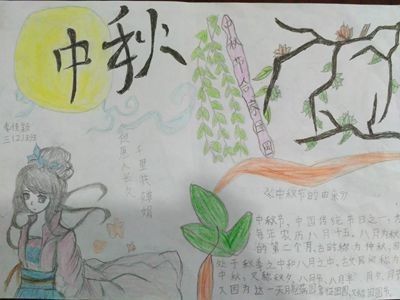 中秋
但愿人长久
千里共婵娟
中秋节合家团圆
《中秋节的由来》
中秋节,中国传统节日之一,为
每年农历八月十五,八月为秋
的第二个月,古时称为仲秋,因
处于秋季之中和八月之中,古民间称为
中秋,又称秋夕、八月节、八月半、月夕、月
又因为这一天月亮满圆,象征团圆,又称团圆节。